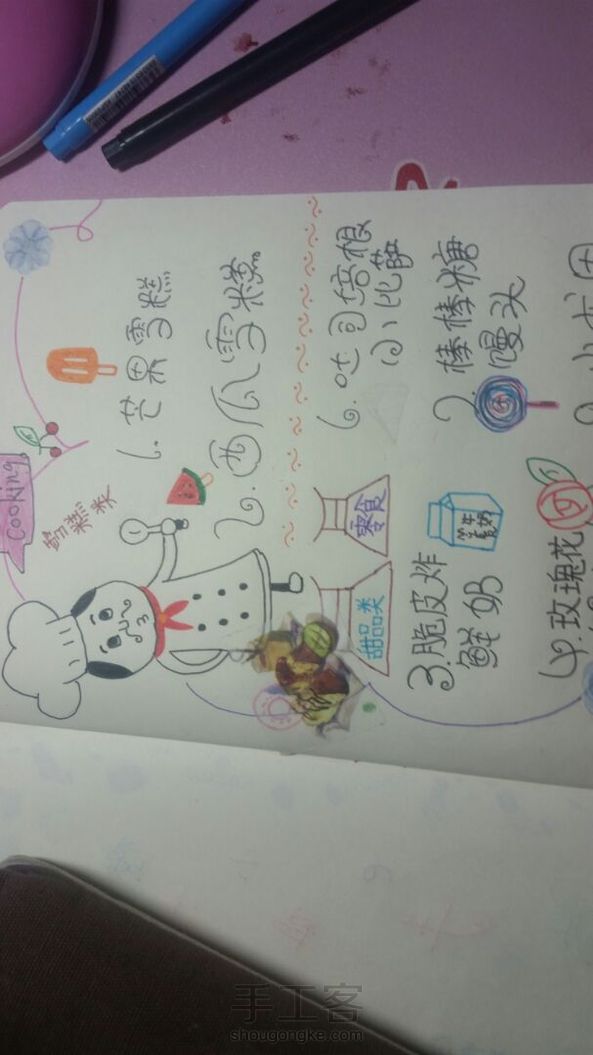 Cooking
雪糕类
1. 芒果雪糕
2. 西瓜雪糕
甜品类
零食
3.脆皮炸
鲜奶
6. 吐司培根
小比萨
4.玫瑰花
7. 棒棒糖
馒头
手工客
shougongke.com